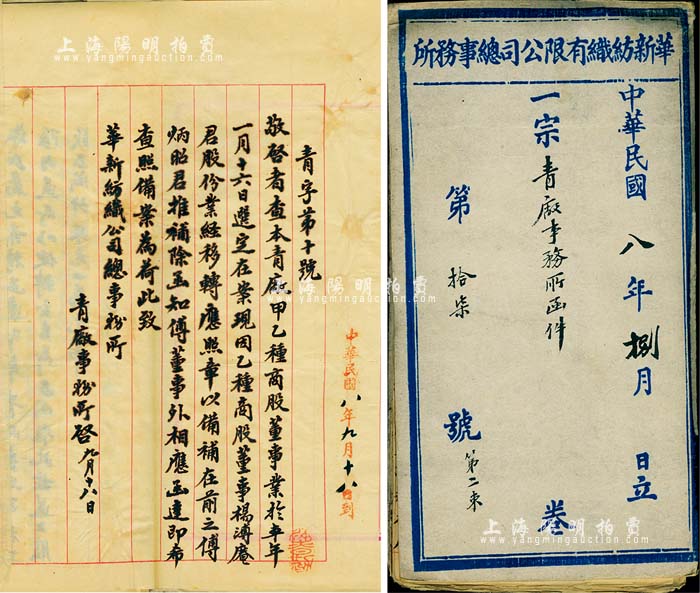 上海陽明拍賣
www.yangmingauction.com
青字第十號
敬啓者查本青廠甲乙種商股董事業於本年
一月十六日選定在案現因乙種商股董事楊溥菴
君股份業經移轉應照章以備補在前之傅
炳昭君推補除函知傅董事外相應函達即希
查照備案為荷此致
華新紡織公司總事務所
青廠事務所啓 九月十八日
中華民國八年九月十八日到
華新紡織有限公司總事務所
中華民國 八年 捌月 日立
一宗 青廠事務所函件 卷
第 拾柒 號 第二束
上海陽明拍賣
www.yangmingauction.com
上海陽明拍賣
www.yangmingauction.com
上海陽明拍賣
www.yangmingauction.com